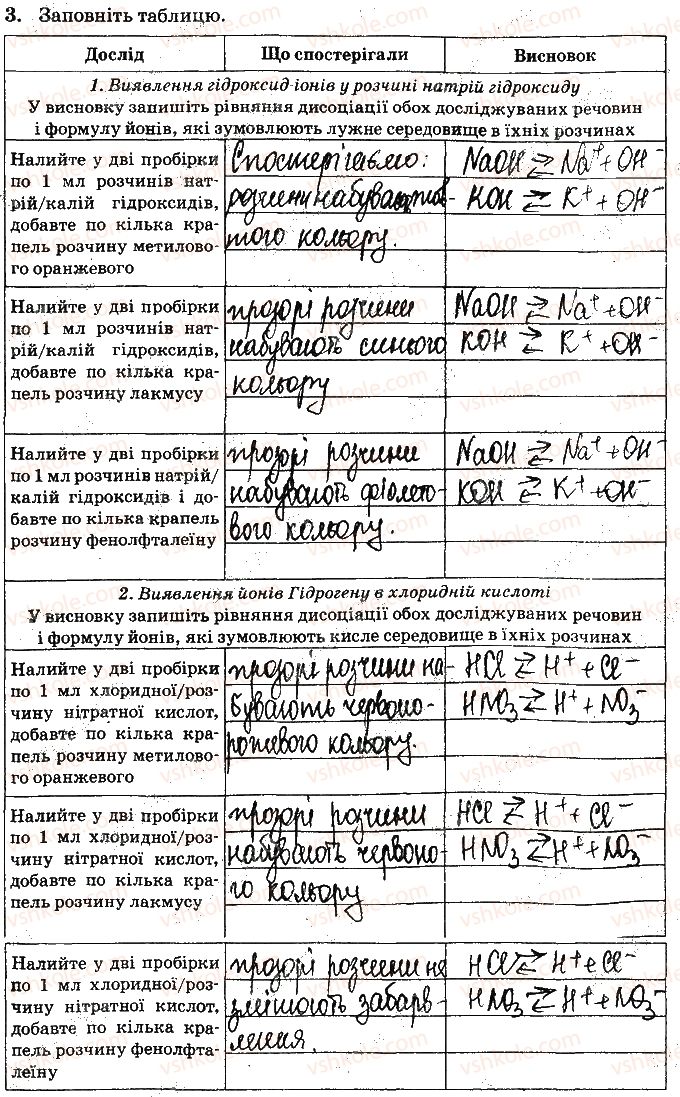 3. Заповніть таблицю.
Дослід
Що спостерігали
Висновок
1. Виявлення гідроксид-іонів у розчині натрій гідроксиду
У висновку запишіть рівняння дисоціації обох досліджуваних речовин
і формулу йонів, які зумовлюють лужне середовище в їхніх розчинах
Налийте у дві пробірки
по 1 мл розчинів нат-
рій/калій гідроксидів,
добавте по кілька кра-
пель розчину метилово-
го оранжевого
Спостерігаємо:
розчини набувають жов-
того кольору.
NaOH ⇄ Na⁺ + OH⁻
KOH ⇄ K⁺ + OH⁻
Налийте у дві пробірки
по 1 мл розчинів нат-
рій/калій гідроксидів,
добавте по кілька кра-
пель розчину лакмусу
прозорі розчини
набувають синього
кольору
NaOH ⇄ Na⁺ + OH⁻
KOH ⇄ K⁺ + OH⁻
Налийте у дві пробірки
по 1 мл розчинів натрій/
калій гідроксидів і до-
бавте по кілька крапель
розчину фенолфталеїну
прозорі розчини
набувають фіолето-
вого кольору.
NaOH ⇄ Na⁺ + OH⁻
KOH ⇄ K⁺ + OH⁻
2. Виявлення йонів Гідрогену в хлоридній кислоті
У висновку запишіть рівняння дисоціації обох досліджуваних речовин
і формулу йонів, які зумовлюють кисле середовище в їхніх розчинах
Налийте у дві пробірки
по 1 мл хлоридної/роз-
чину нітратної кислот,
добавте по кілька кра-
пель розчину метилово-
го оранжевого
прозорі розчини на-
бувають червоно-
рожевого кольору.
HCl ⇄ H⁺ + Cl⁻
HNO₃ ⇄ H⁺ + NO₃⁻
Налийте у дві пробірки
по 1 мл хлоридної/роз-
чину нітратної кислот,
добавте по кілька кра-
пель розчину лакмусу
прозорі розчини
набувають червоно-
го кольору
HCl ⇄ H⁺ + Cl⁻
HNO₃ ⇄ H⁺ + NO₃⁻
Налийте у дві пробірки
по 1 мл хлоридної/роз-
чину нітратної кислот,
добавте по кілька кра-
пель розчину фенолфта-
леїну
прозорі розчини не
змінюють забарв-
лення.
HCl ⇄ H⁺ + Cl⁻
HNO₃ ⇄ H⁺ + NO₃⁻
vshkole.com